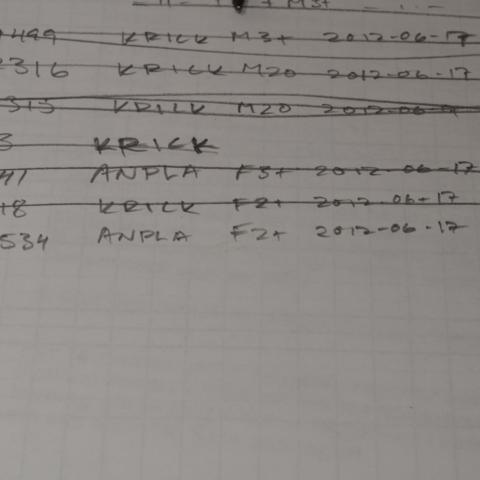 M3+
499 KRICK M3+ 2012-06-17
2316 KRICK M20 2012-06-17
313 KRICK M20 2012-06-17
3 KRICK
41 ANPLA F3+ 2012-06-17
18 KRICK F2+ 2012-06-17
534 ANPLA F2+ 2012-06-17